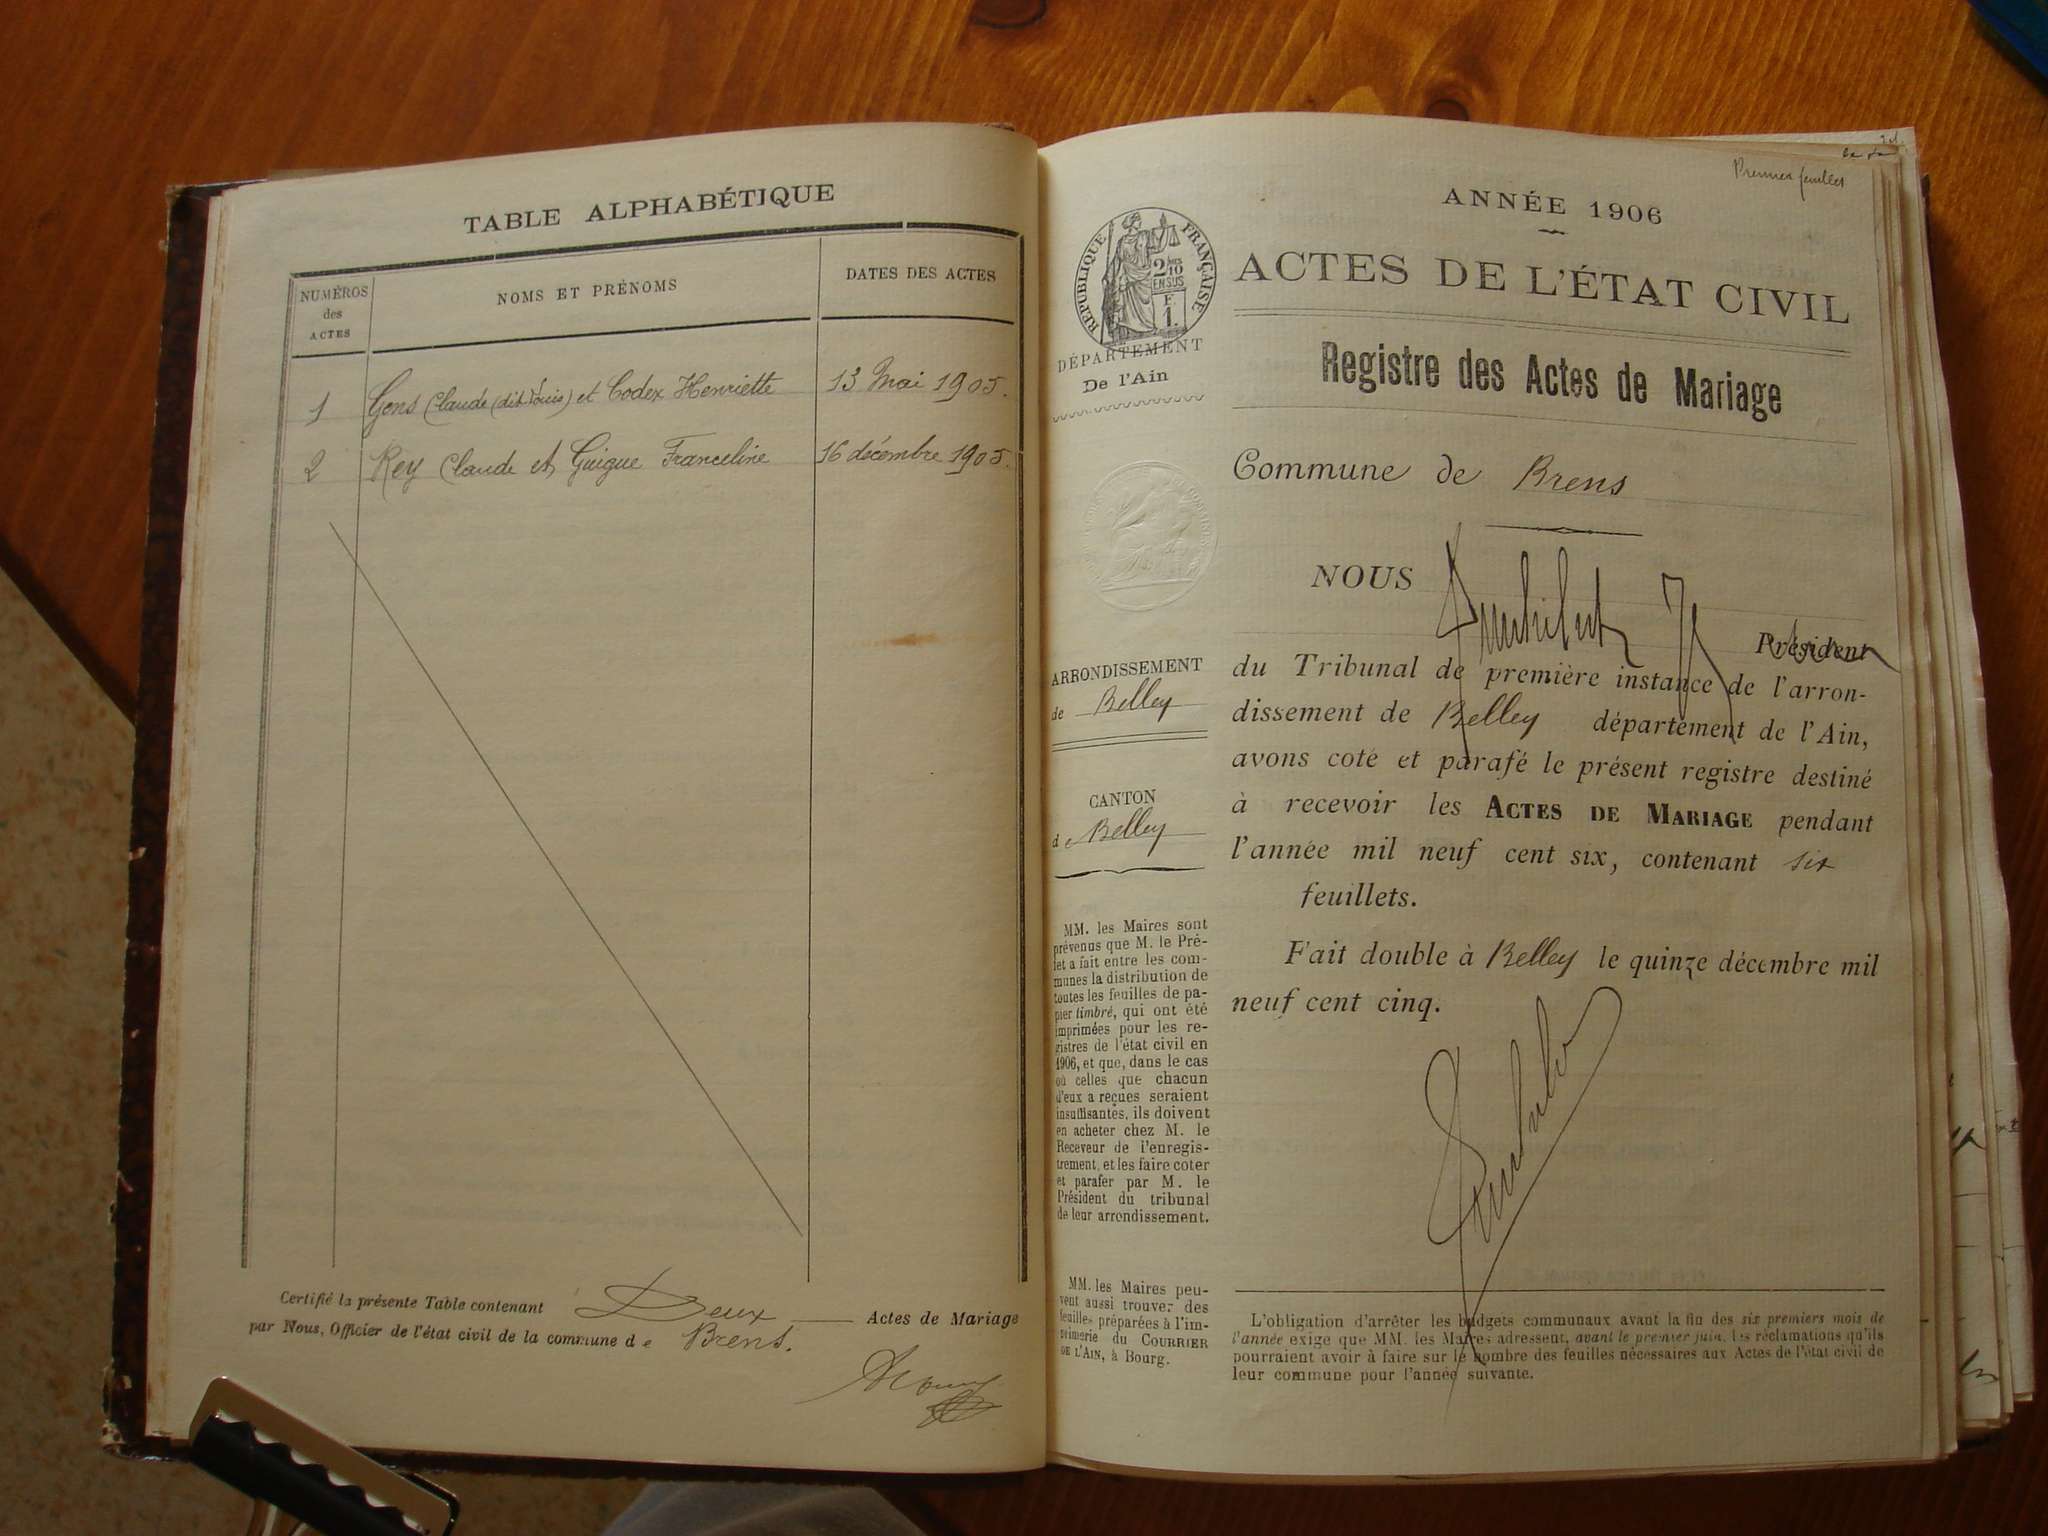 TABLE ALPHABÉTIQUE
NUMÉROS des ACTES
NOMS ET PRÉNOMS
DATES DES ACTES
1 Gons Claude (dit Louis) et Codex Henriette 13 Mai 1905.
2 Rey Claude et Guigue Franceline 16 décembre 1905.
Certifié la présente Table contenant Deux Actes de Mariage
par Nous, Officier de l'état civil de la commune de Brens.
Premier feuillet
ANNÉE 1906
RÉPUBLIQUE FRANÇAISE
2 10
EN SUS
F.
1.
ACTES DE L'ÉTAT CIVIL
DÉPARTEMENT
De l'Ain
Registre des Actes de Mariage
Commune de Brens
NOUS
Président
du Tribunal de première instance de l'arron-
dissement de Belley département de l'Ain,
avons coté et parafé le présent registre destiné
à recevoir les ACTES DE MARIAGE pendant
l'année mil neuf cent six, contenant six
feuillets.
Fait double à Belley le quinze décembre mil
neuf cent cinq.
ARRONDISSEMENT
de Belley
CANTON
de Belley
MM. les Maires sont
prévenus que M. le Pré-
fet a fait entre les com-
munes la distribution de
toutes les feuilles de pa-
pier timbré, qui ont été
imprimées pour les re-
gistres de l'état civil en
1906, et que, dans le cas
où celles que chacun
d'eux a reçues seraient
insuffisantes, ils doivent
en acheter chez M. le
Receveur de l'enregis-
trement, et les faire coter
et parafer par M. le
Président du tribunal
de leur arrondissement.
MM. les Maires peu-
vent aussi trouver des
feuilles préparées à l'im-
primerie du COURRIER
DE L'AIN, à Bourg.
L'obligation d'arrêter les budgets communaux avant la fin des six premiers mois de
l'année exige que MM. les Maires adressent, avant le premier juin, les réclamations qu'ils
pourraient avoir à faire sur le nombre des feuilles nécessaires aux Actes de l'état civil de
leur commune pour l'année suivante.